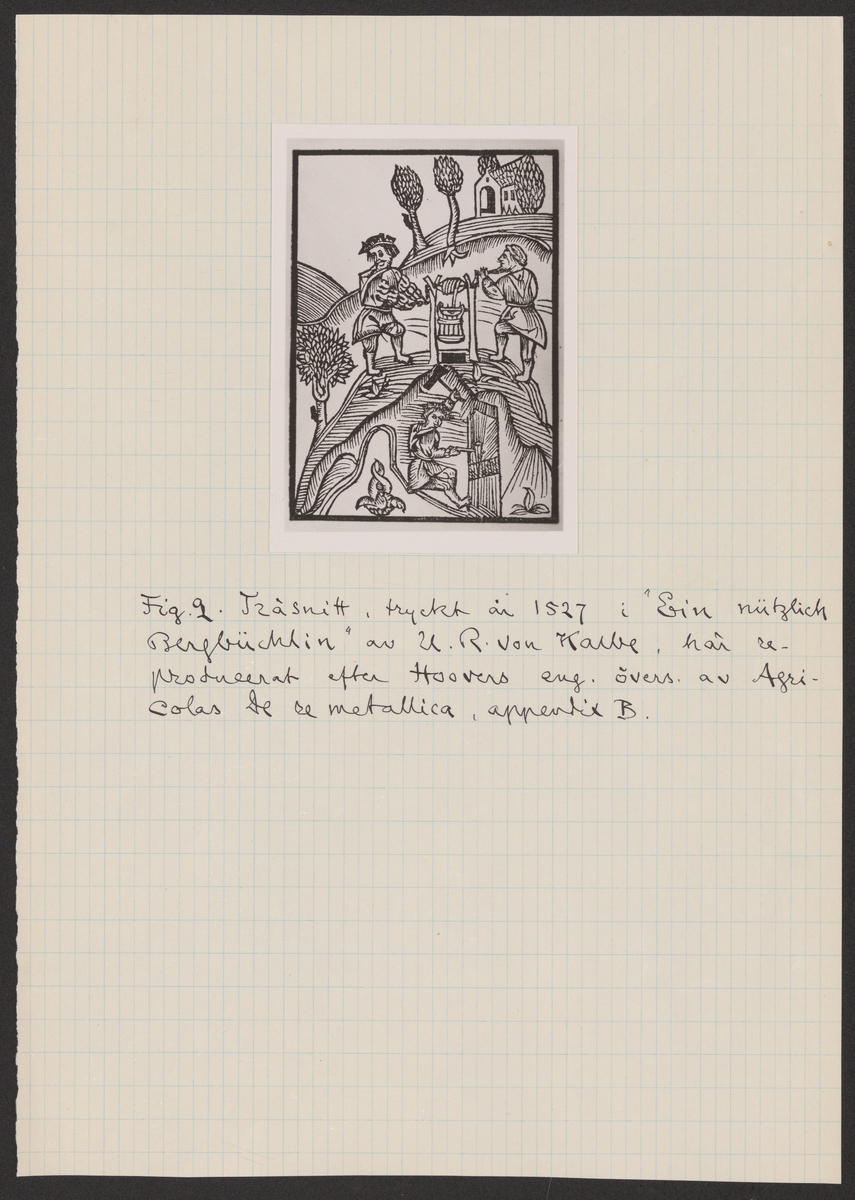 Fig. 2. Träsnitt, tryckt år 1527 i "Ein nützlich
Bergbüchlin" av U. R. von Kalbe, här re-
producerat efter Hoovers eng. övers. av Agri-
colas De re metallica, appendix B.